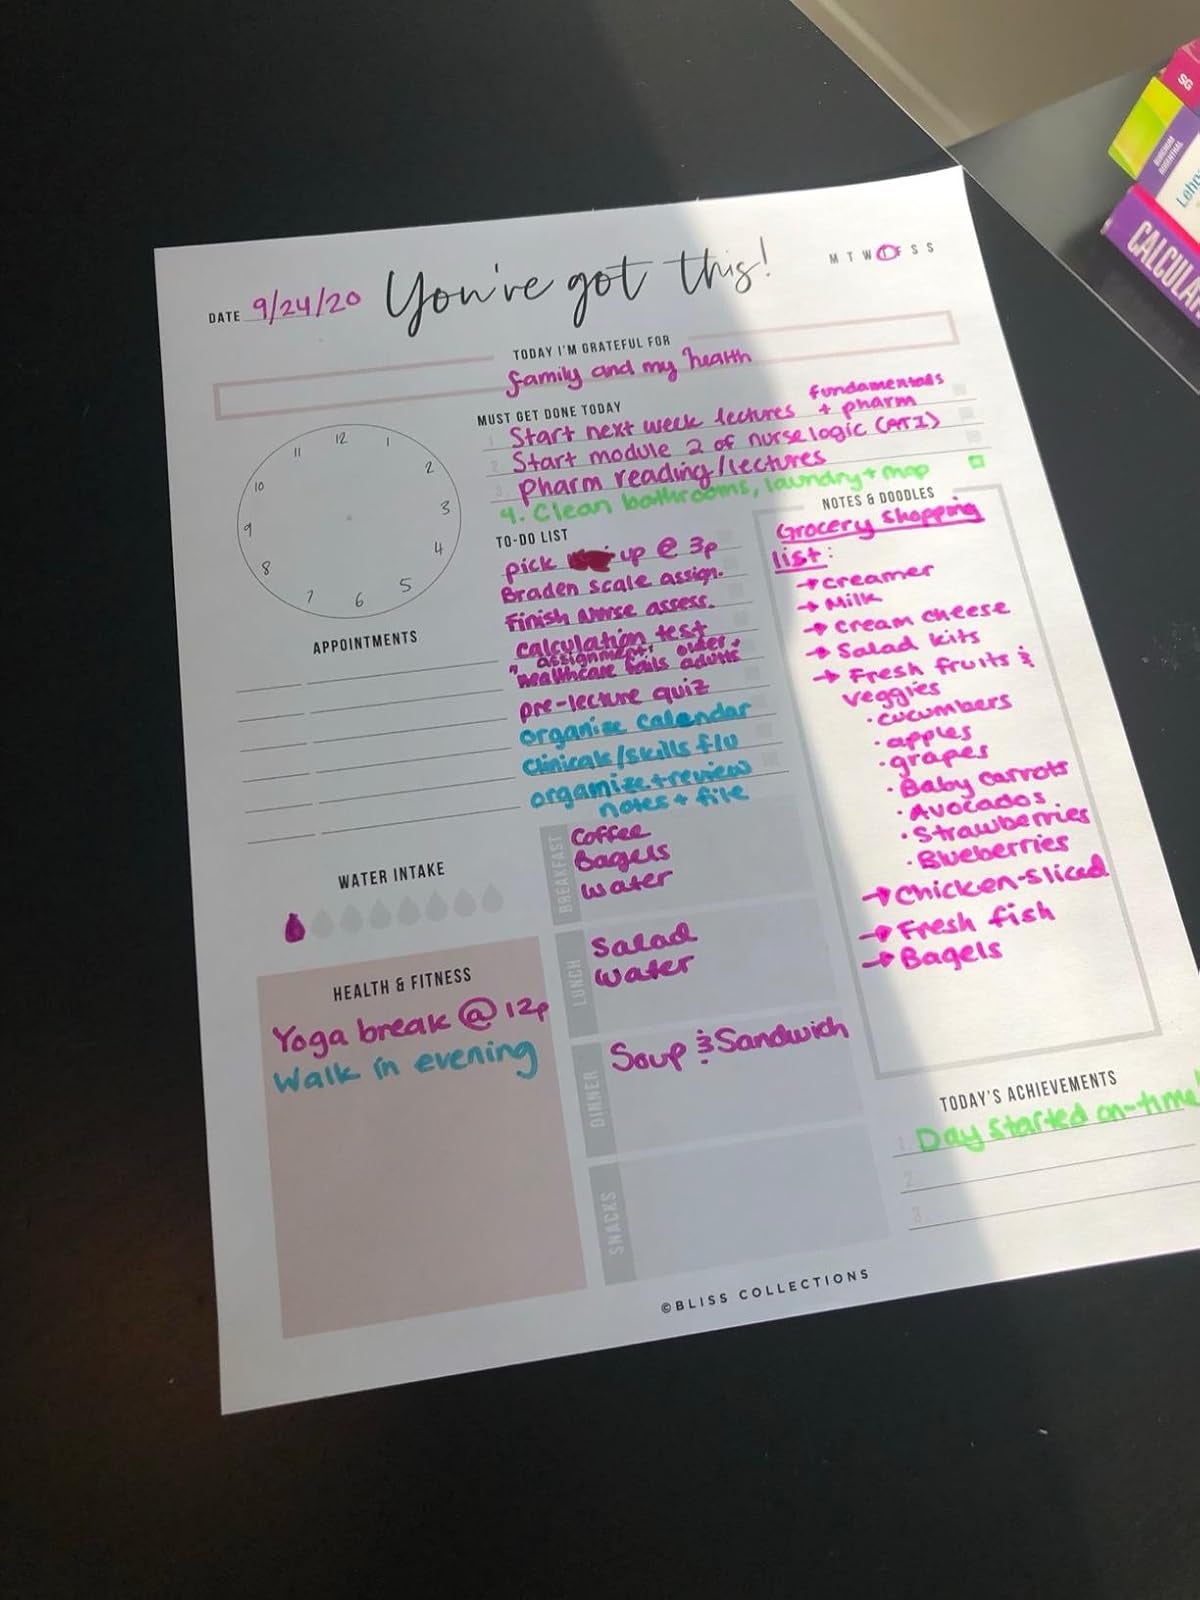 DATE 9/24/20
You've got this!
M T W T F S S
TODAY I'M GRATEFUL FOR
family and my health
MUST GET DONE TODAY
fundamentals
1 Start next week lectures + pharm
2 Start module 2 of nurselogic (ATI)
3 pharm reading/lectures
4. Clean bathrooms, laundry + mop
12
1
2
3
4
5
6
7
8
9
10
11
TO-DO LIST
pick up @ 3p
Braden scale assign.
Finish nurse assess.
calculation test
assignment: older
healthcare fails adults
pre-lecture quiz
organize calendar
clinicals/skills f/u
organize + review
notes + file
NOTES & DOODLES
Grocery shopping
list:
→ creamer
→ Milk
→ cream cheese
→ Salad kits
→ Fresh fruits &
veggies
· cucumbers
· apples
· grapes
· Baby carrots
· Avocados
· Strawberries
· Blueberries
→ Chicken-sliced
→ Fresh fish
→ Bagels
APPOINTMENTS
WATER INTAKE
HEALTH & FITNESS
Yoga break @ 12p
Walk in evening
BREAKFAST
Coffee
Bagels
Water
LUNCH
Salad
Water
DINNER
Soup & Sandwich
SNACKS
TODAY'S ACHIEVEMENTS
1 Day started on-time!
2
3
©BLISS COLLECTIONS
SG
CALCUL